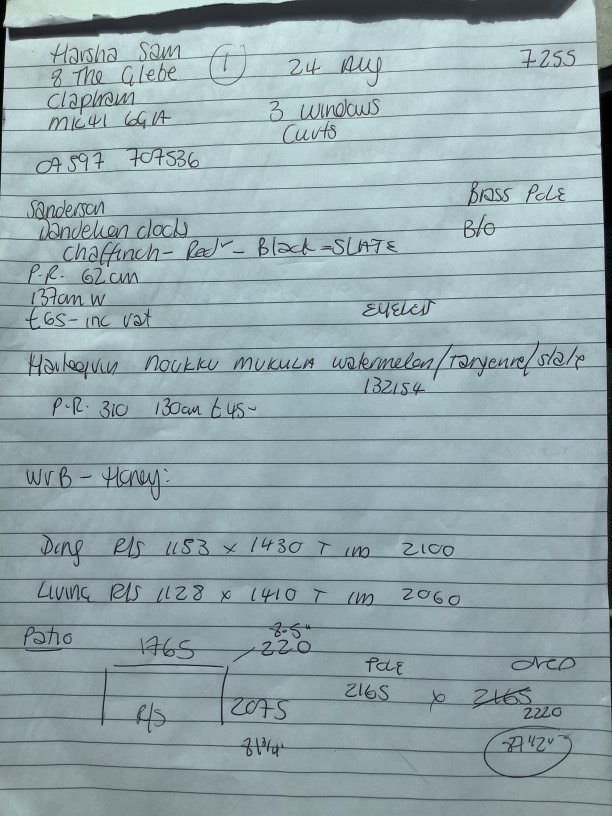 Harsha Sam
8 The Glebe ① 24 Aug 7255
Clapham
MK41 6GA 3 windows
Curts
07597 707536
Brass Pole
Sanderson
Dandelion clocks B/O
Chaffinch - Red - Black = SLATE
P.R. 62cm
137cm W
£65 - inc vat EYELET
Harlequin NOUKKU MUKULA watermelon/Tangerine/slate
132154
P.R. 310 130cm £45-
WVB - Honey:
Ding R/S 1153 x 1430 T 1m 2100
Living R/S 1128 x 1410 T 1m 2060
Patio 1765 8.5" 220 Pole DROP
2165 x 2165
R/S 2075 2220
81 3/4"